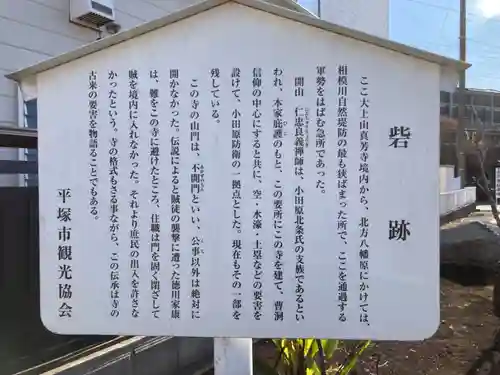 砦跡
ここ大上山真芳寺境内から、北方八幡原にかけては、
相模川自然堤防の最も狭ばまった所で、ここを通過する
軍勢をはばむ急所であった。
開山 仁忠良義禅師は、小田原北条氏の支族であるとい
われ、本家庇護のもと、この要所にこの寺を建て、曹洞
信仰の中心にすると共に、空・水濠・土塁などの要害を
設けて、小田原防衛の一拠点とした。現在もその一部を
残している。
この寺の山門は、不開門といい、公事以外は絶対に
開かなかった。伝説によると賊徒の襲撃に遭った徳川家康
は、難をこの寺に避けたところ、住職は門を固く閉ざして
賊を境内に入れなかった。それより庶民の出入を許さな
かったという。寺の格式もさる事ながら、この伝承は寺の
古来の要害を物語ることでもある。
平塚市観光協会